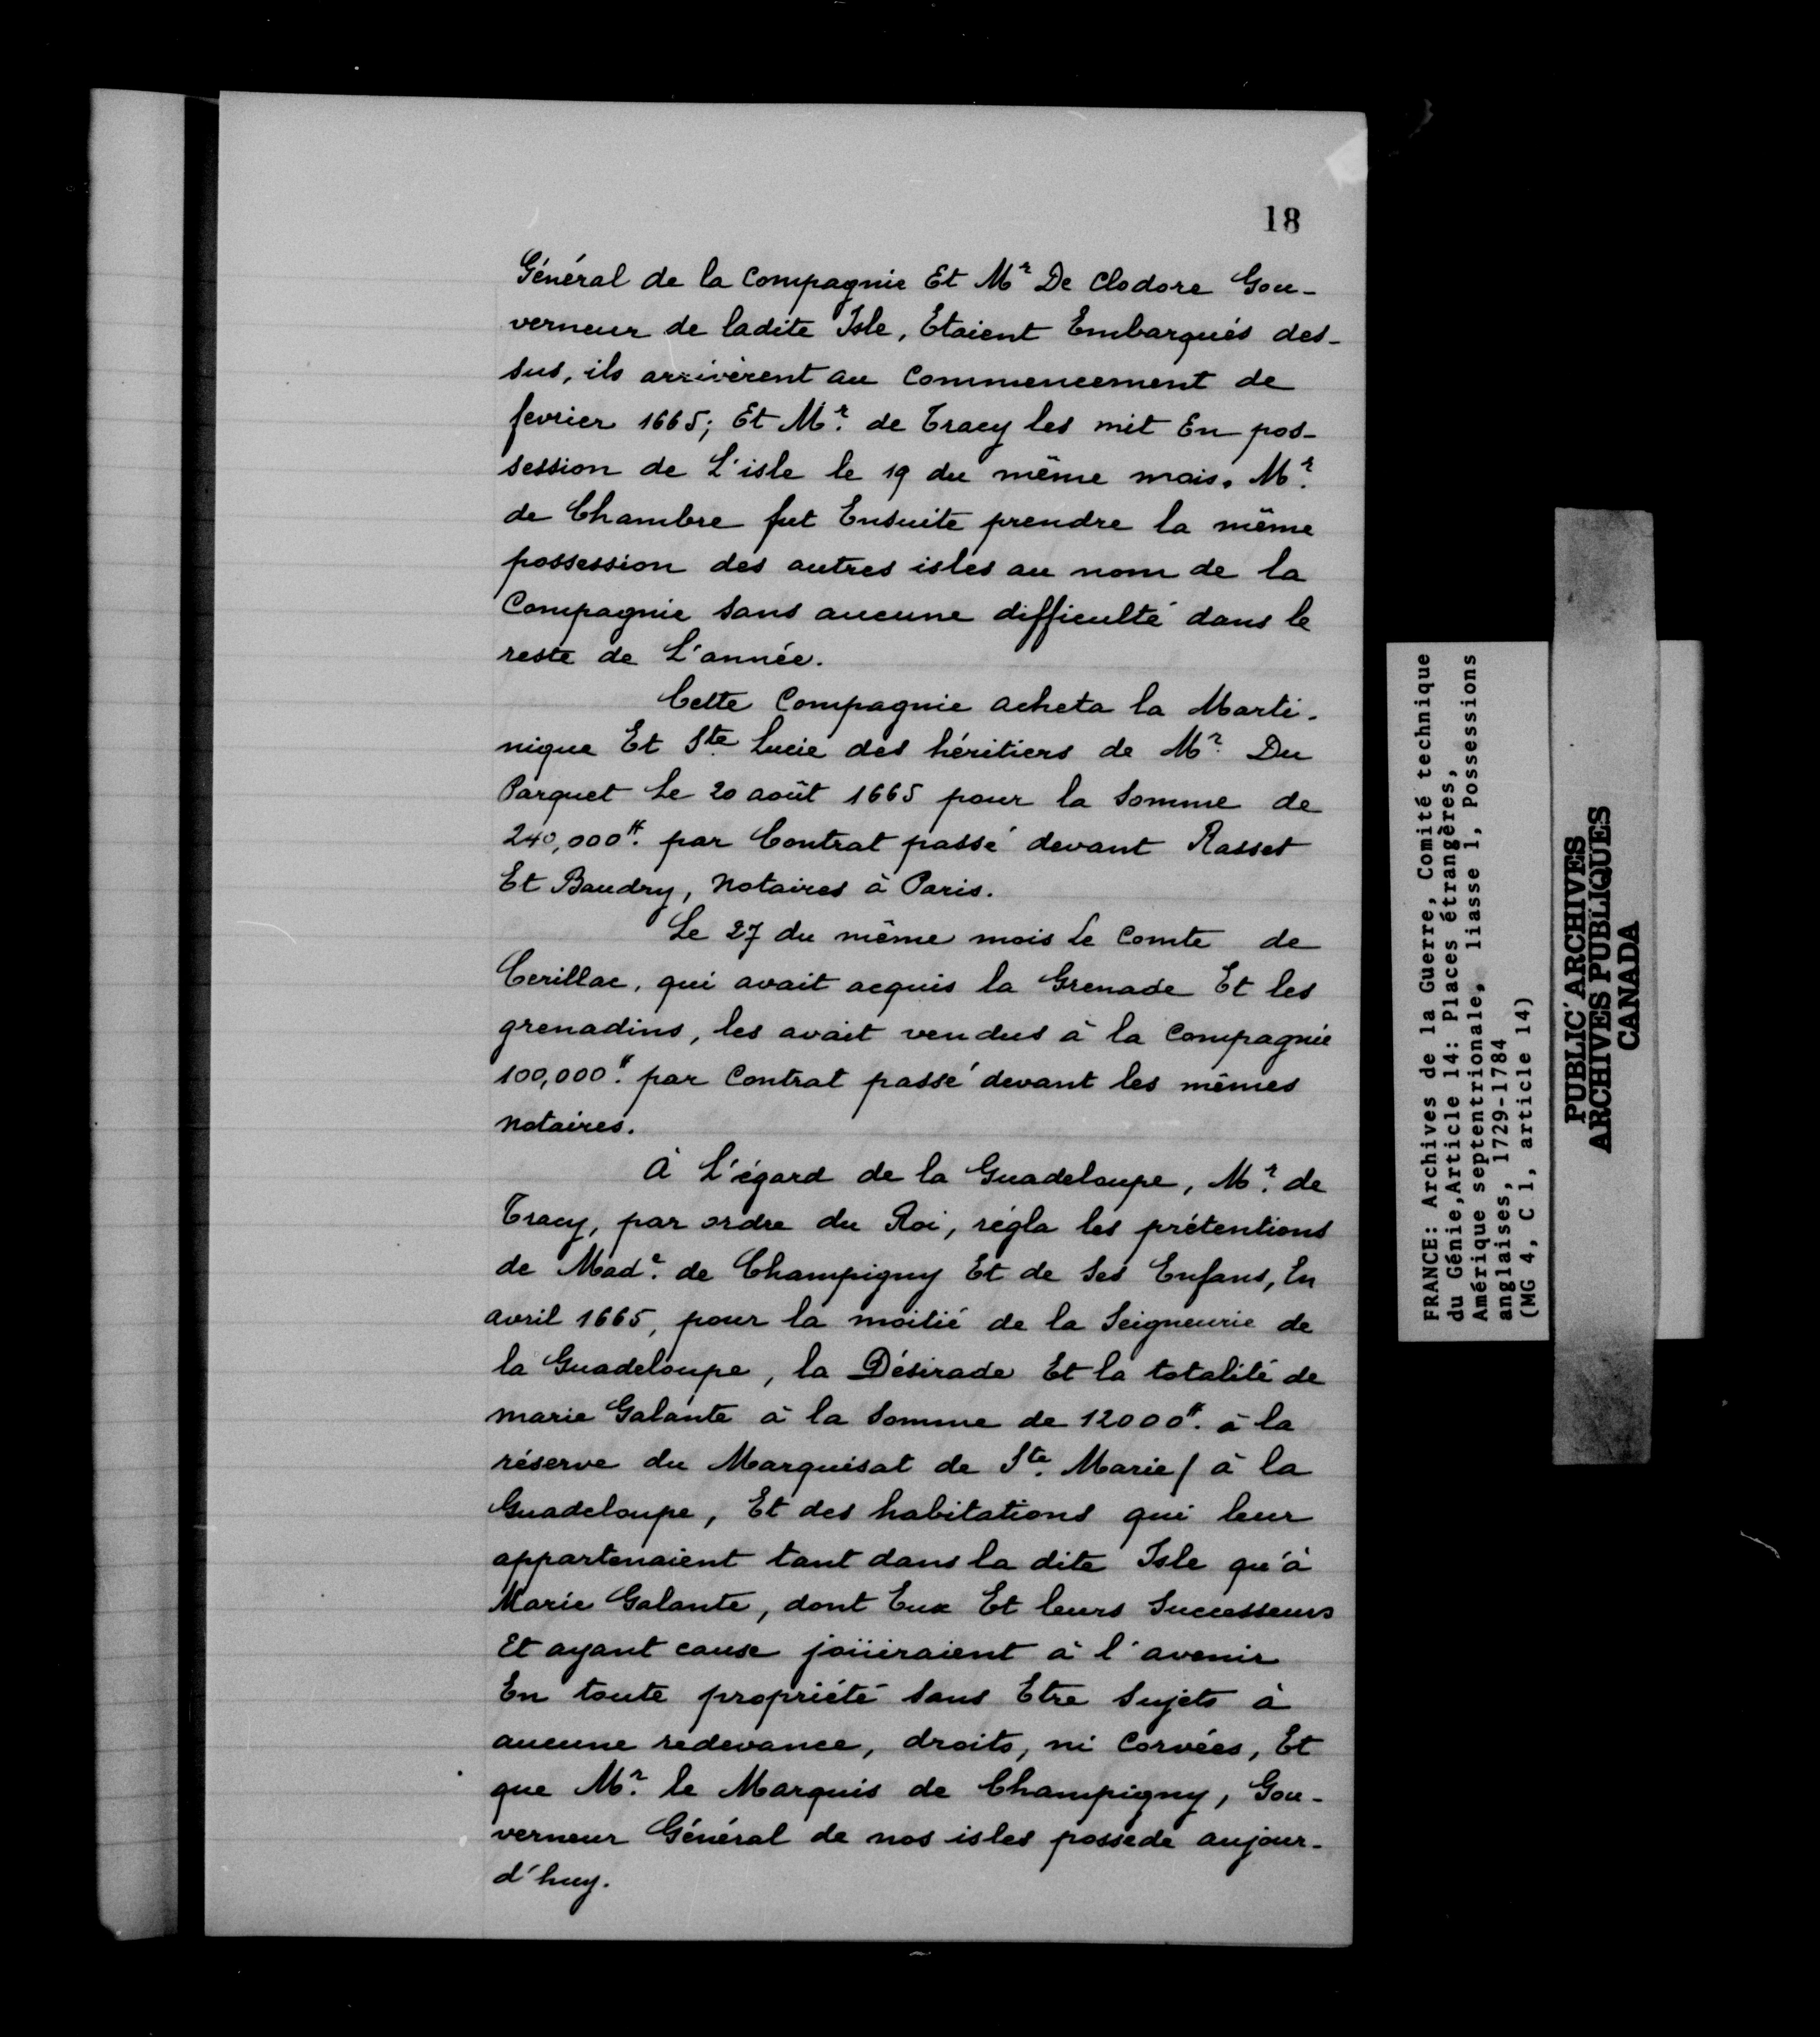 18
Général de la Compagnie Et Mr De Clodore Gou-
verneur de ladite Isle, Etaient Embarqués des-
sus, ils arrivèrent au Commencement de
fevrier 1665; Et Mr. de Tracy les mit En pos-
session de L'isle le 19 du même mois. Mr.
de Chambre fut Ensuite prendre la même
possession des autres isles au nom de la
Compagnie sans aucune difficulté dans le
reste de L'année.
Cette Compagnie acheta la Marti-
nique Et Ste Lucie des héritiers de Mr. Du
Parquet Le 20 août 1665 pour la Somme de
240,000#. par Contrat passé devant Rasset
Et Baudry, Notaires à Paris.
Le 27 du même mois Le Comte de
Cerillac, qui avait acquis la Grenade Et les
grenadins, les avait vendus à la Compagnie
100,000#. par Contrat passé devant les mêmes
Notaires.
A L'égard de la Guadeloupe, Mr. de
Tracy, par ordre du Roi, régla les prétentions
de Made. de Champigny Et de Ses Enfans, En
avril 1665, pour la moitié de la Seigneurie de
la Guadeloupe, la Désirade Et la totalité de
marie Galante à la Somme de 12000#. à la
réserve du Marquisat de Ste. Marie/ à la
Guadeloupe, Et des habitations qui leur
appartenaient tant dans la dite Isle qu'à
Marie Galante, dont Eux Et leurs Successeurs
Et ayant cause joüiraient à l'avenir
En toute propriété Sans Etre Sujets à
aucune redevance, droits, ni Corvées, Et
que Mr. le Marquis de Champigny, Gou-
verneur Général de nos isles possede aujour-
d'huy.
FRANCE: Archives de la Guerre, Comité technique
du Génie,Article 14: Places étrangères,
Amérique septentrionale, liasse 1, Possessions
anglaises, 1729-1784
(MG 4, C 1, article 14)
PUBLIC ARCHIVES
ARCHIVES PUBLIQUES
CANADA